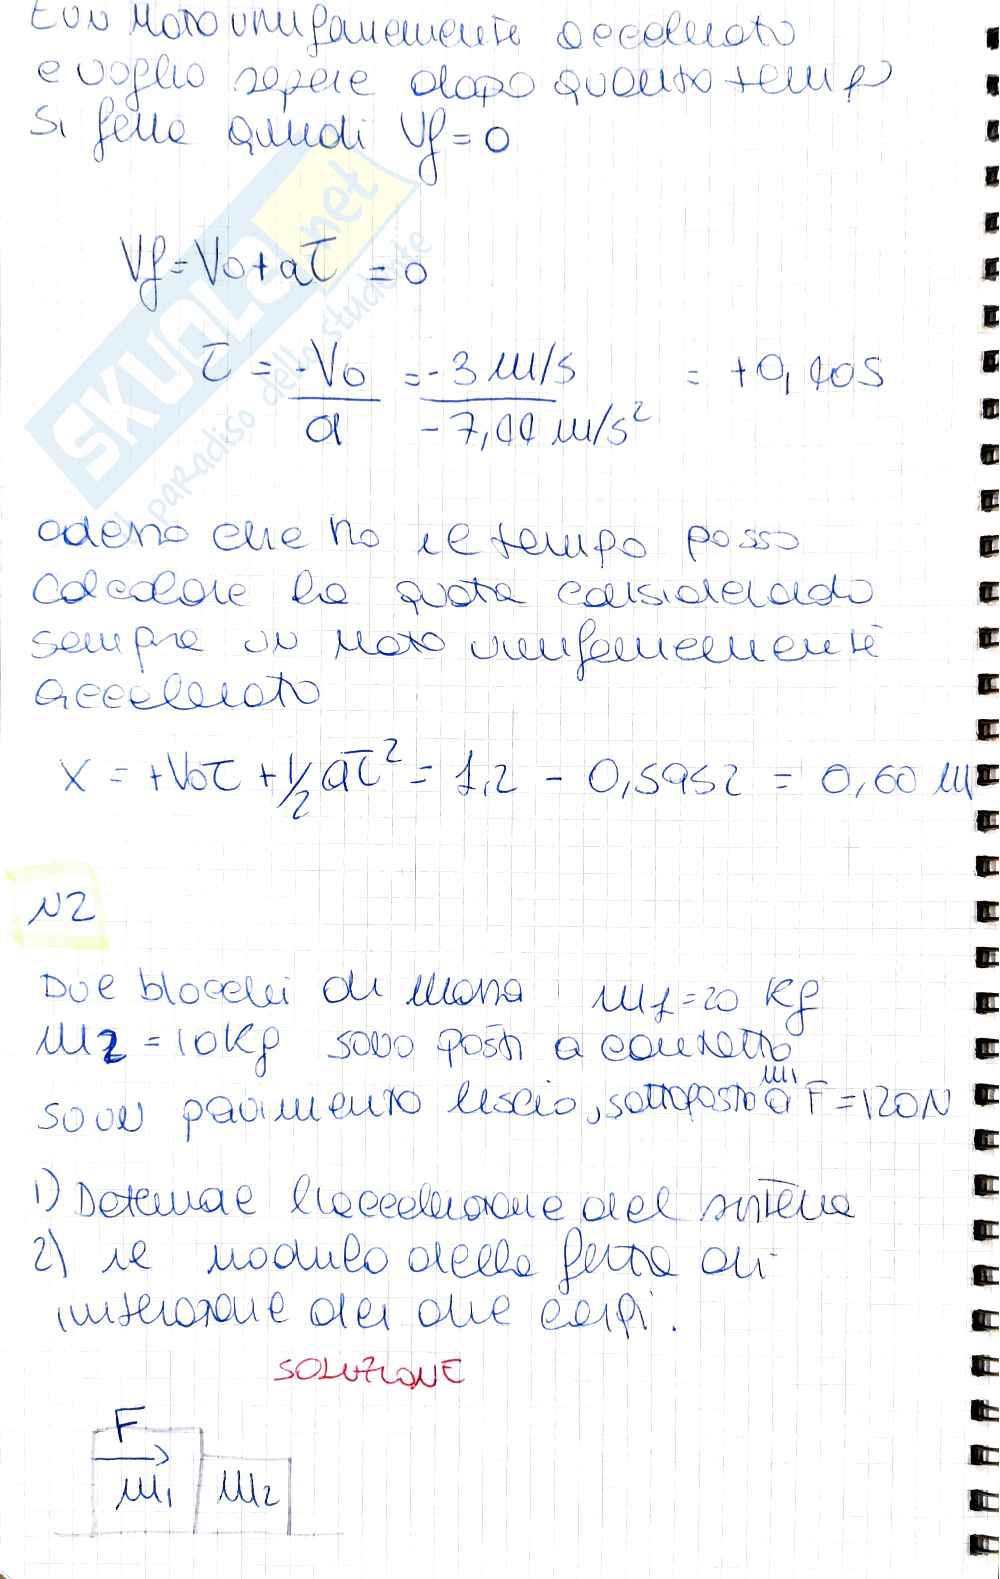 È UN MOTO uniformemente accelerato
e voglio sapere dopo quanto temp
si ferma quindi Vf = 0
Vf = V0 + aτ = 0
τ = -V0/a = -3 m/s / -7,44 m/s² = +0,40 s
adesso che ho il tempo posso
calcolare la quota considerando
sempre un moto uniformemente
accelerato
X = +V0τ + 1/2 aτ² = 1,2 - 0,5952 = 0,60 m
N2
Due blocchi di massa m1 = 20 Kg
m2 = 10 Kg sono posti a contatto
su un pavimento liscio, sottoposto a F = 120N
m1
1) Determinare l'accelerazione del sistema
2) il modulo della forza di
interazione dei due corpi.
SOLUZIONE
F
m1 m2
SKUOLA.net
il paradiso dello studente